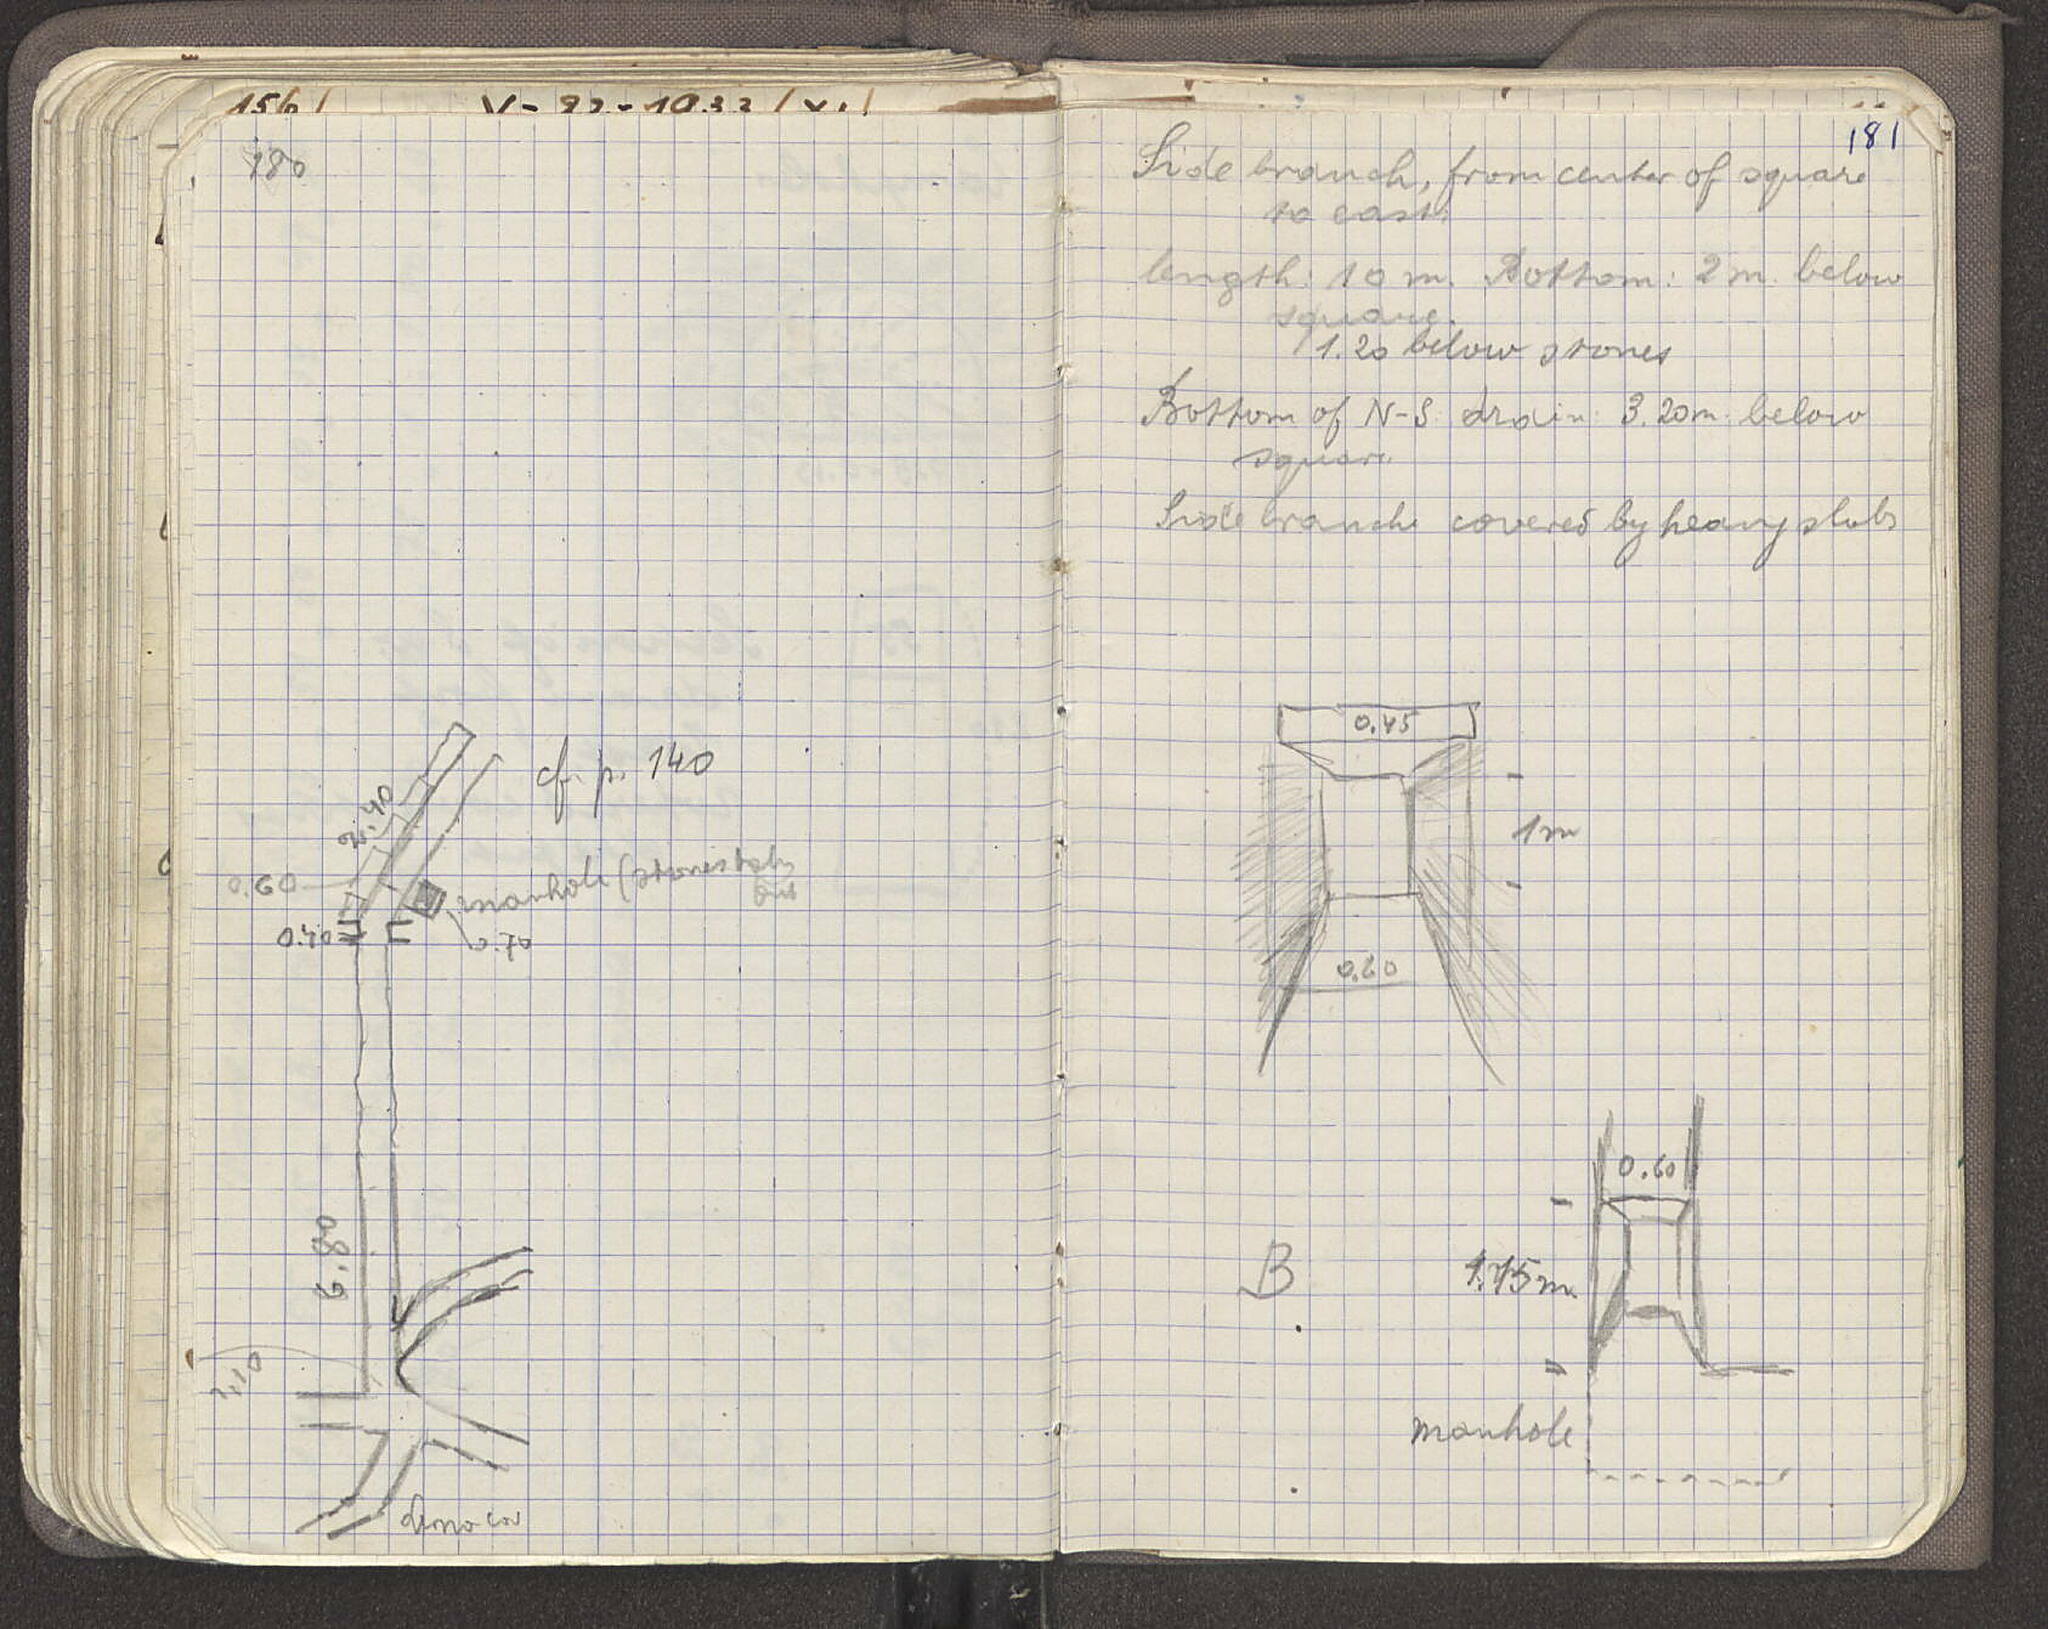 180
cf. p. 140
0.60
manhole (stone slab
0.40
0.70
6.80
1,10
181
Side branch, from center of square
to east.
length: 10 m. Bottom: 2 m. below
square.
1.20 below stones
Bottom of N-S drain: 3.20m. below
square.
Side branch covered by heavy slabs
0.45
1m
0.60
0.60
B
1.75m.
manhole